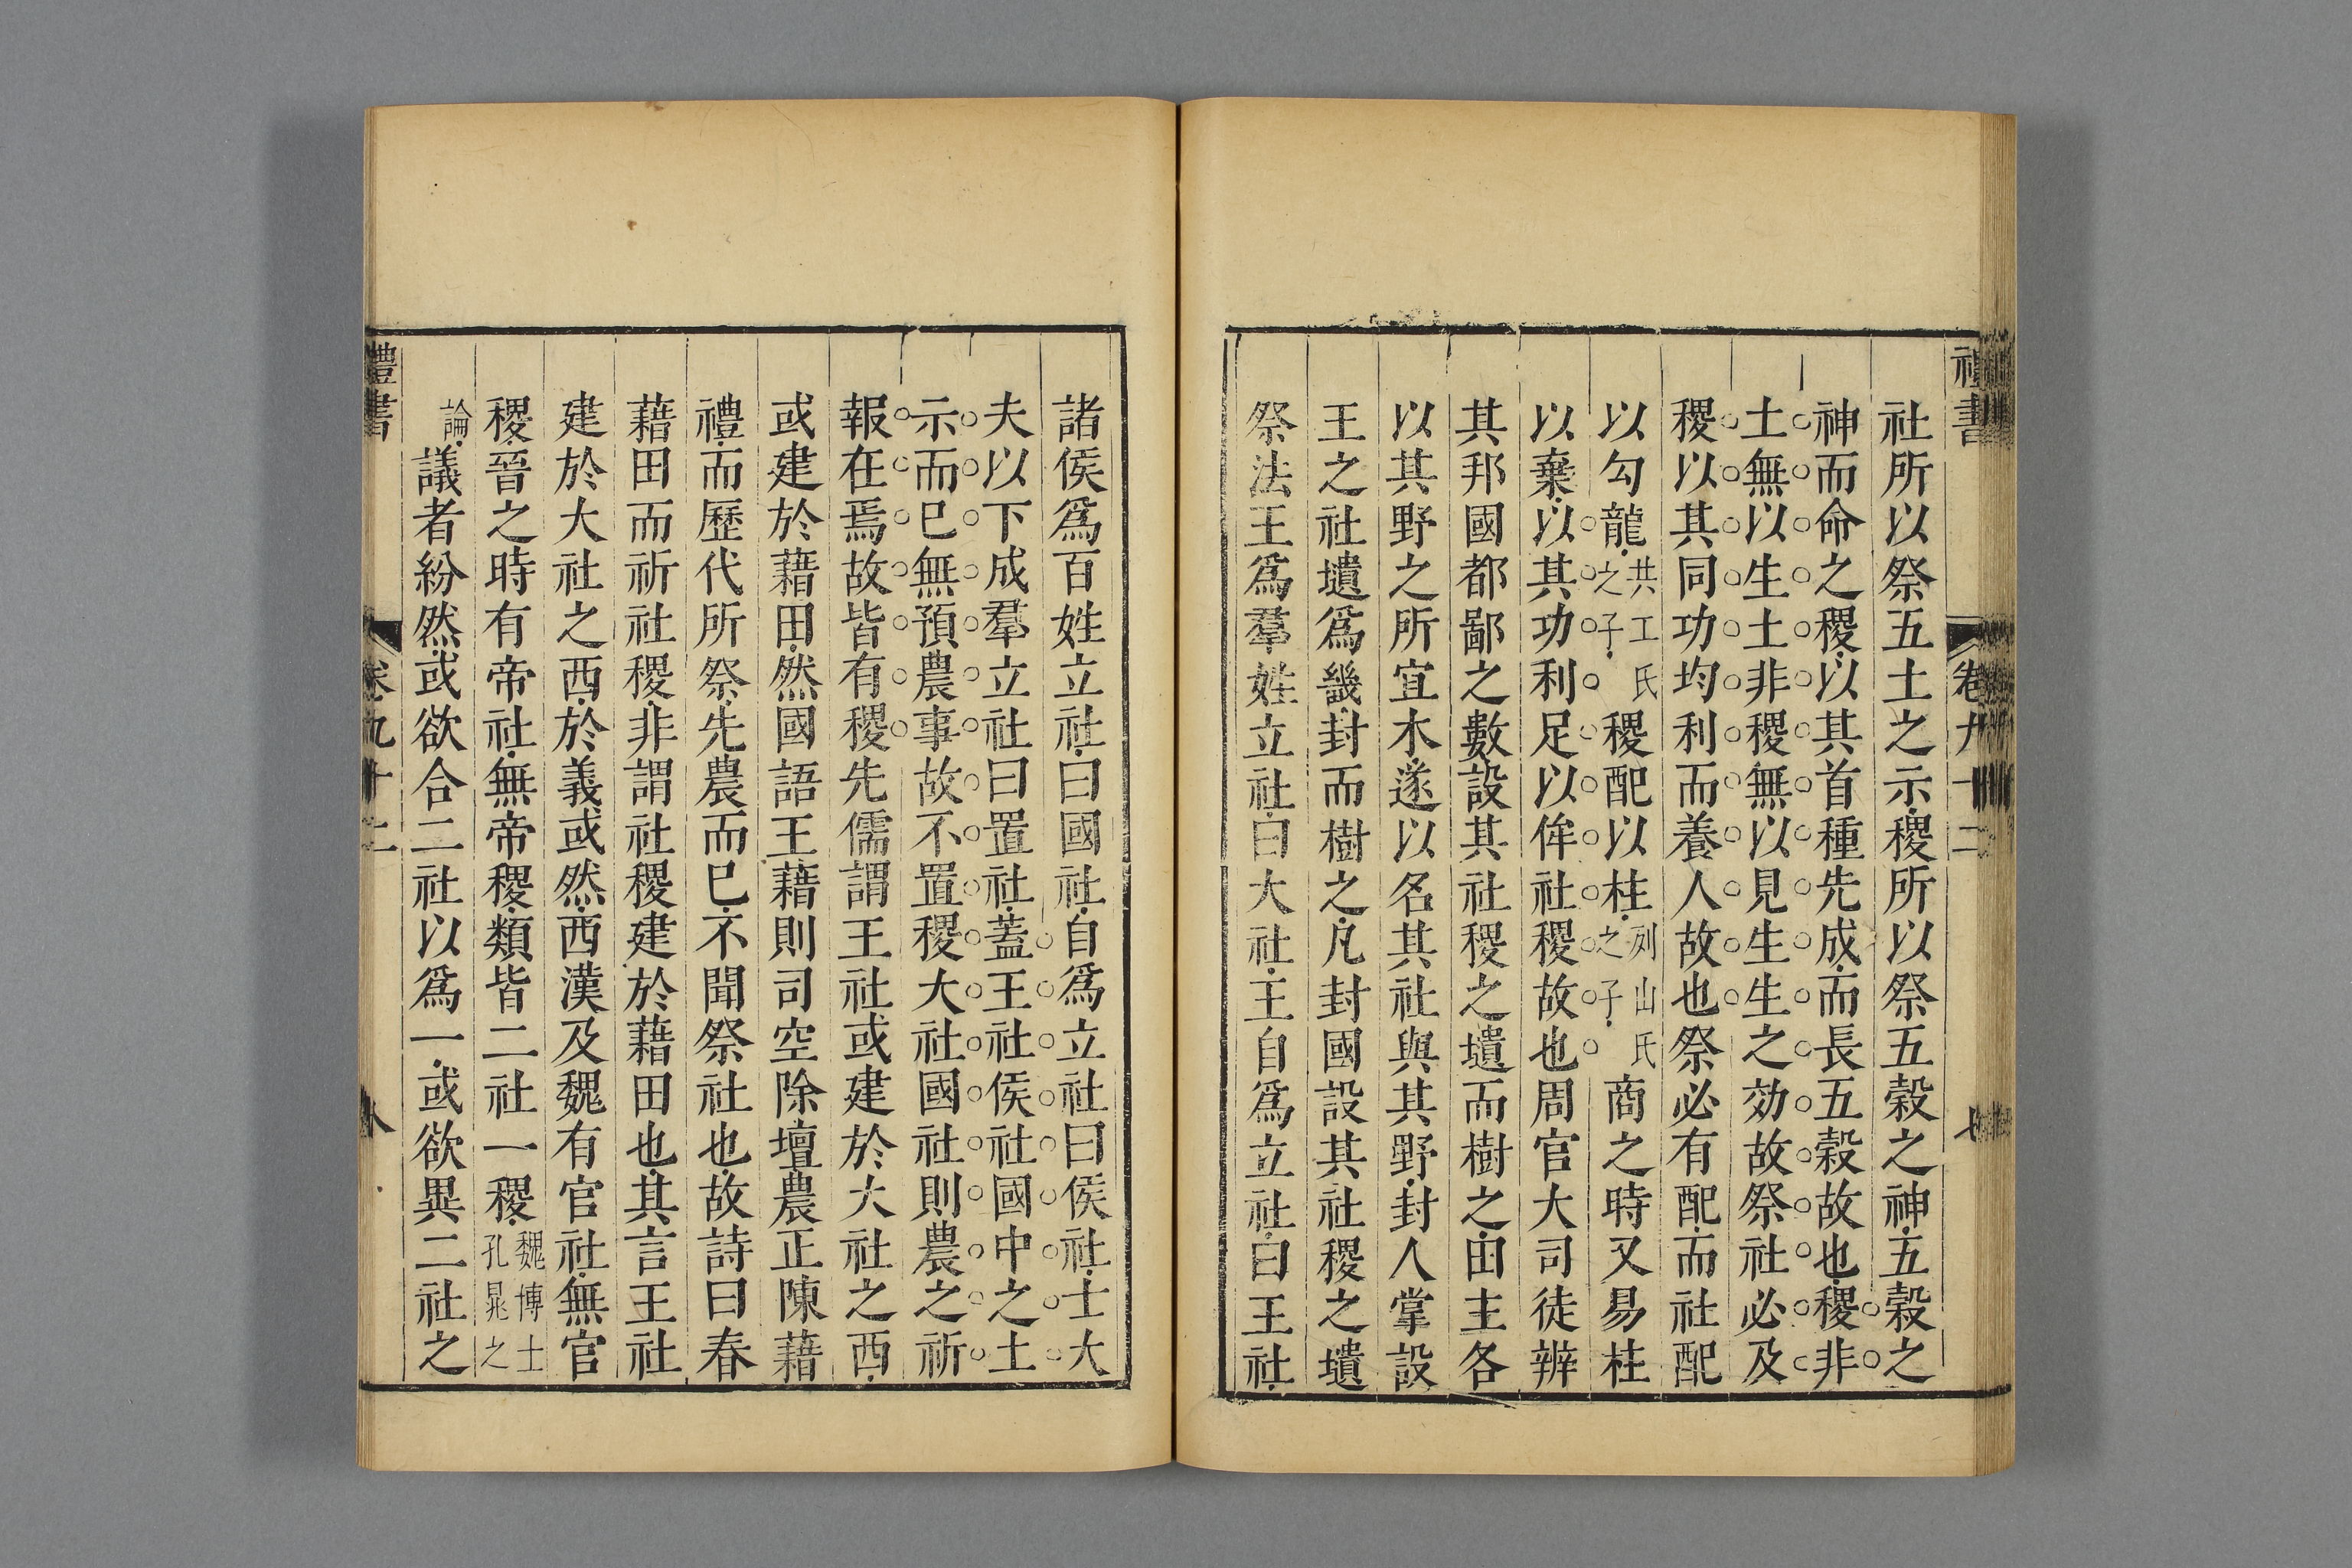 禮書 卷九十二 七
社所以祭五土之示稷所以祭五穀之神五穀之
神而命之稷以其首種先成而長五穀故也稷非
土無以生土非稷無以見生生之効故祭社必及
稷以其同功均利而養人故也祭必有配而社配
以勾龍共工氏之子稷配以柱列山氏之子商之時又易柱
以棄以其功利足以侔社稷故也周官大司徒辨
其邦國都鄙之數設其社稷之壝而樹之田主各
以其野之所宜木遂以名其社與其野封人掌設
王之社壝爲畿封而樹之凡封國設其社稷之壝
祭法王爲羣姓立社曰大社王自爲立社曰王社
諸侯爲百姓立社曰國社自爲立社曰侯社士大
夫以下成羣立社曰置社蓋王社侯社國中之土
示而已無預農事故不置稷大社國社則農之祈
報在焉故皆有稷先儒謂王社或建於大社之西
或建於藉田然國語王藉則司空除壇農正陳藉
禮而歷代所祭先農而已不聞祭社也故詩曰春
藉田而祈社稷非謂社稷建於藉田也其言王社
建於大社之西於義或然西漢及魏有官社無官
稷晉之時有帝社無帝稷類皆二社一稷魏博士孔晁之
論議者紛然或欲合二社以爲一或欲異二社之
禮書 卷九十二 八